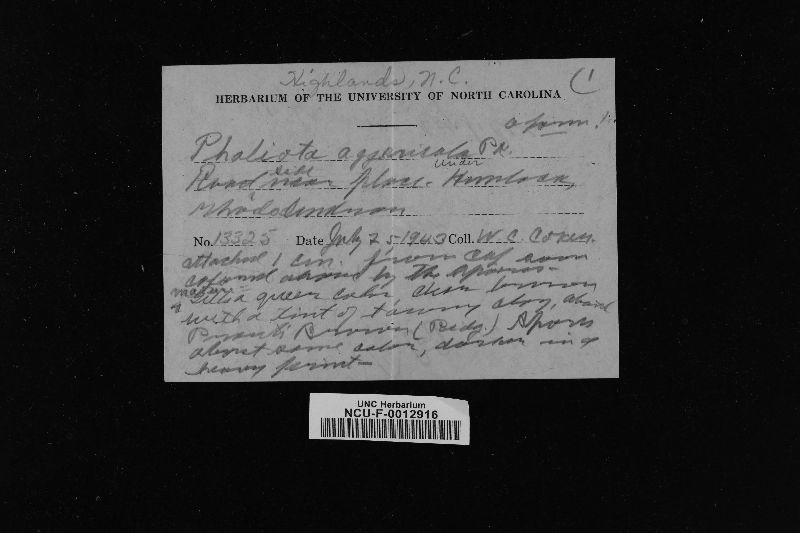 Highlands, N.C.
HERBARIUM OF THE UNIVERSITY OF NORTH CAROLINA
Pholiota
Road side near place. under Hemlock,
Rhododendron
No. 13325 Date July 25-1943 Coll. W. C. Coker.
attached 1 cm. from cap soon
colored above by the spores-
queer color, clear brown
with a tint of tawny olive, about
Brown (Ridg.) Spores
about same color, darker in a
heavy print-
UNC Herbarium
NCU-F-0012916